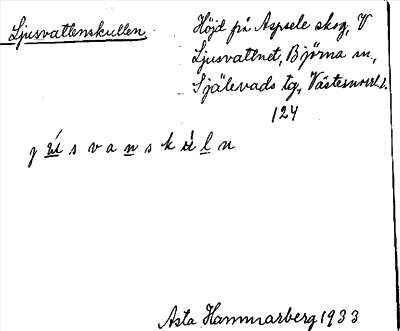 Ljusvattenskullen
Höjd på Aspsele skog, V
Ljusvattnet, Björna sn,
Själevads tg, Västernorrl.
124
Asta Hammarberg 1933